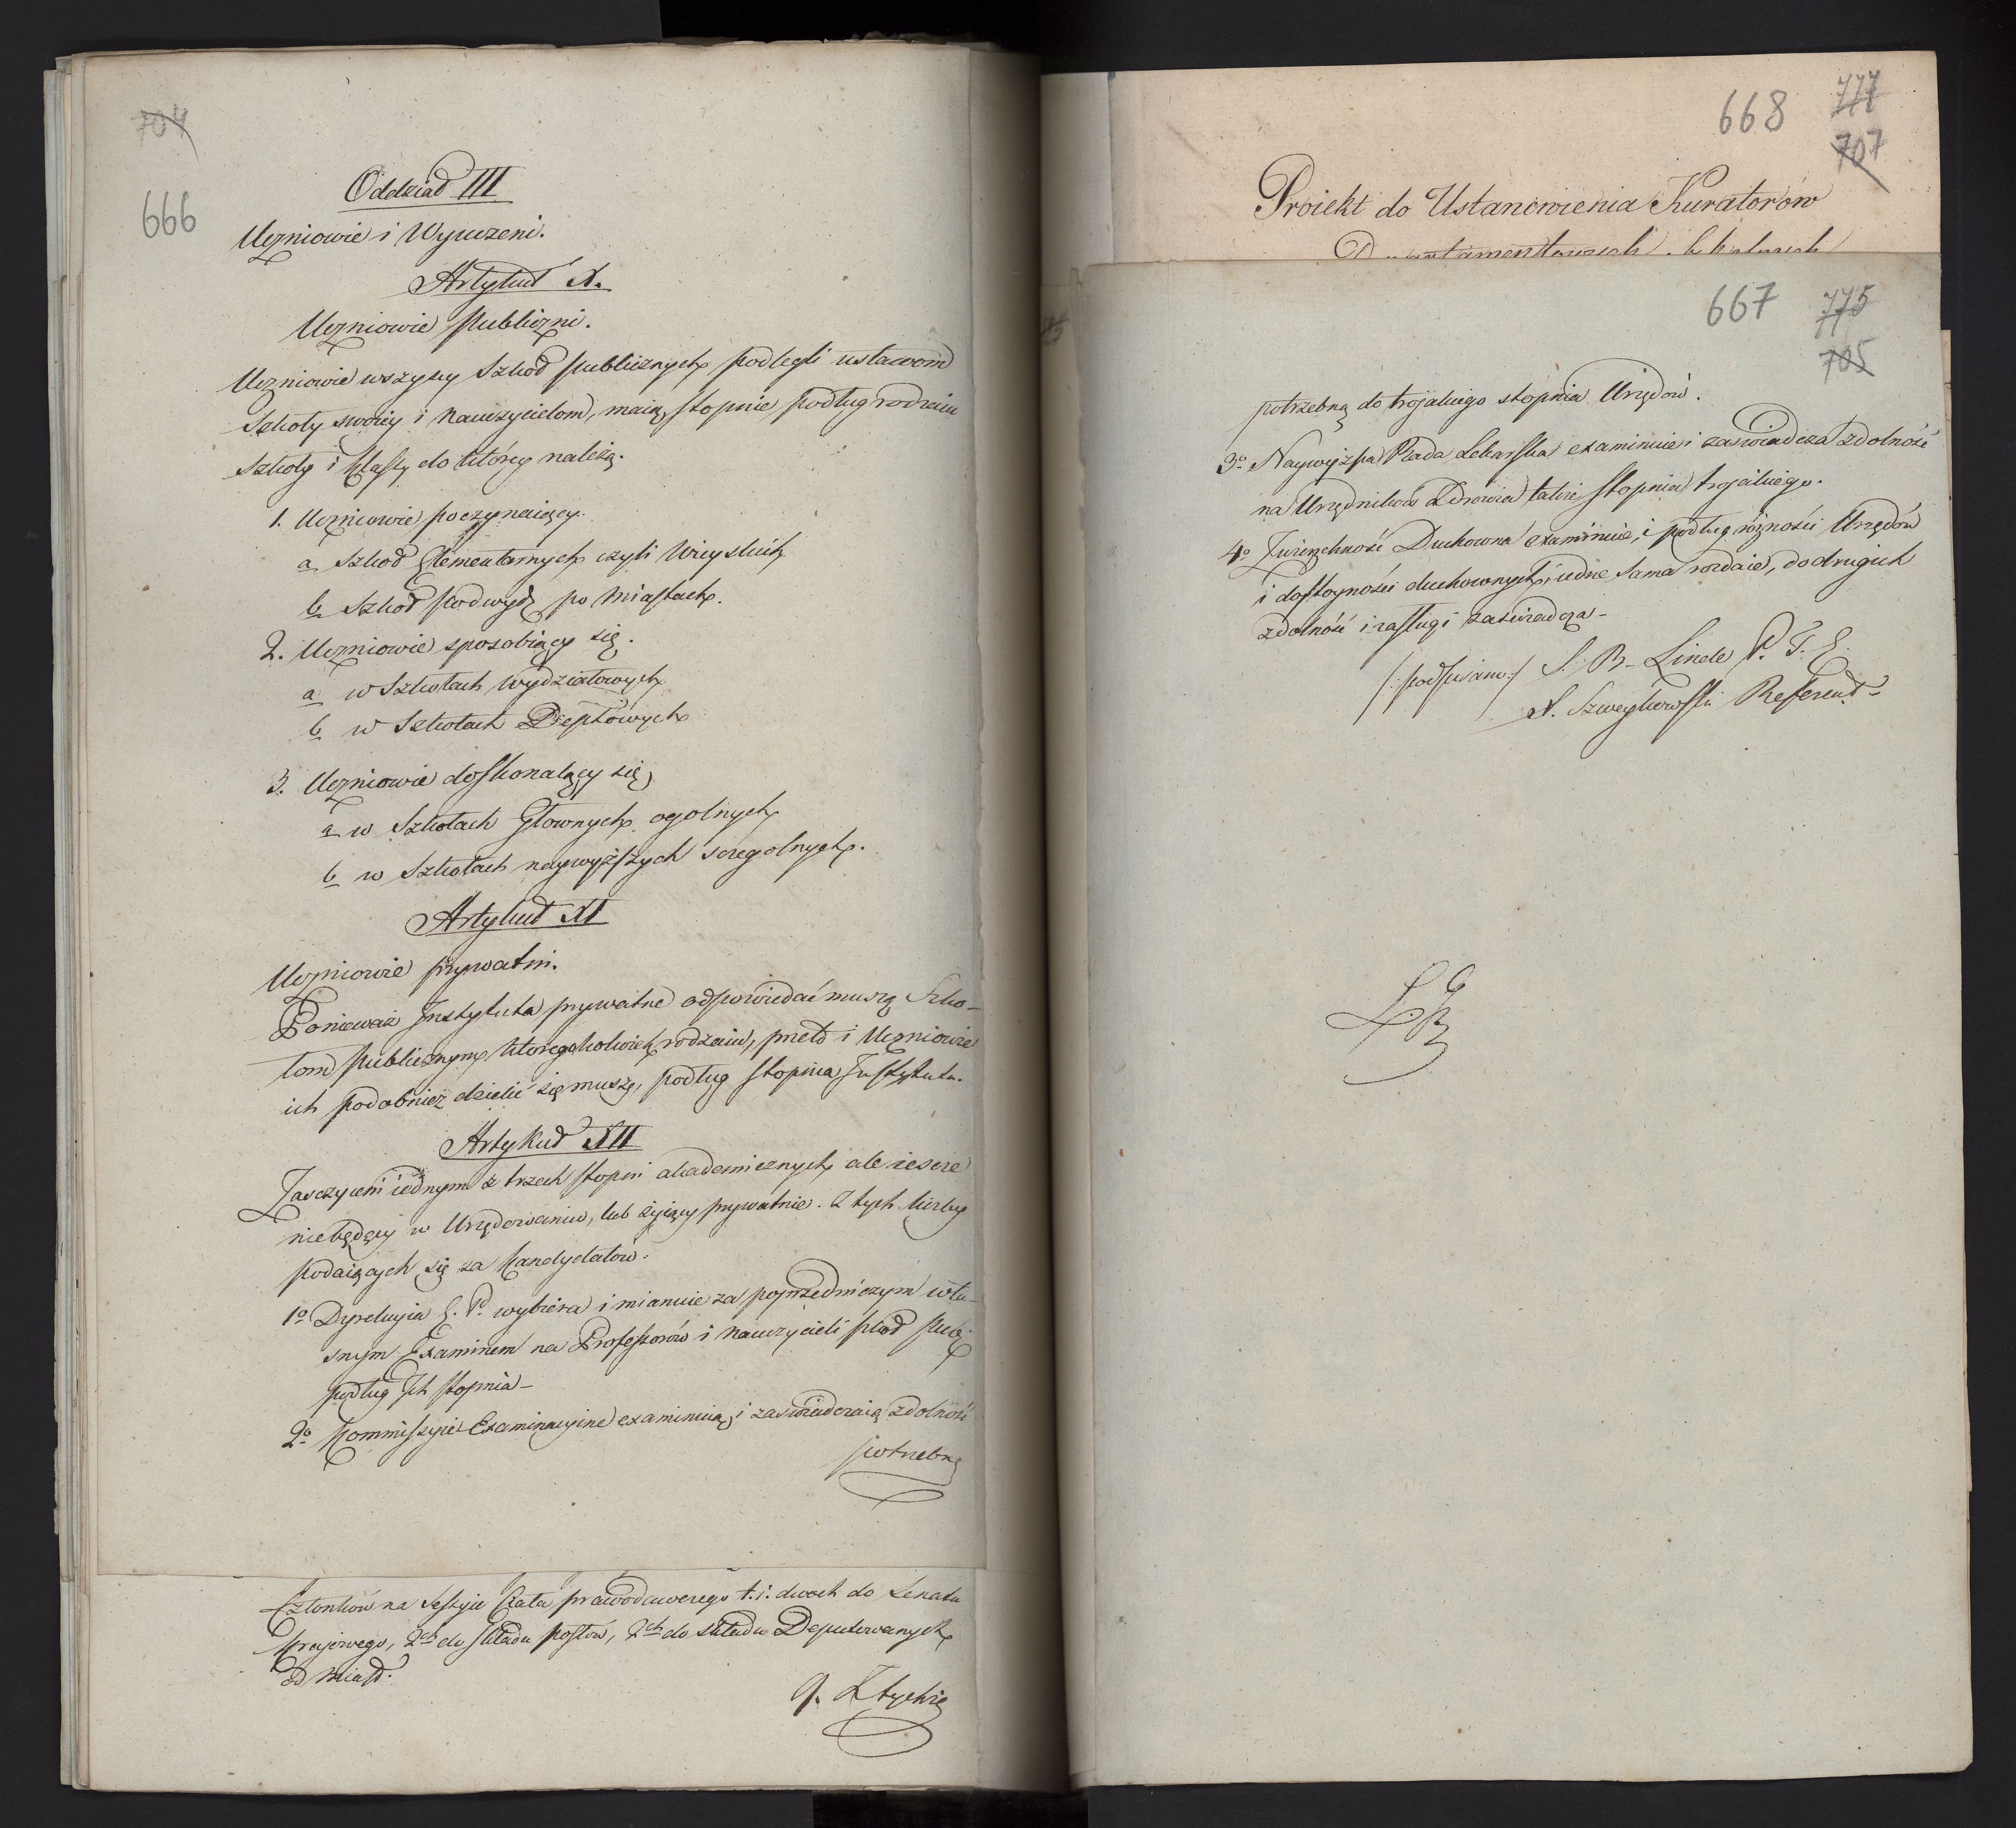 704
666
Oddział III
Uczniowie i Wyuczeni.
Artykuł X.
Uczniowie publiczni.
Uczniowie wszyscy Szkoł publicznych podlegli ustawom
Szkoły swoiey i Nauczycielom, maią stopnie podług rodzaiu
Szkoły i klassy do którey należą.
1. Uczniowie poczynaiący.
a Szkoł Elementarnych czyli Wieyskich
b Szkoł podwydz po Miastach.
2. Uczniowie sposobiący się.
a w Szkołach Wydziałowych
b w Szkołach Deptowych
3. Uczniowie doskonalący się
a w Szkołach Głownych ogolnych
b w Szkołach naywyższych sczegolnych.
Artykuł XI
Uczniowie prywatni.
Ponieważ Instytuta prywatne odpowiedać muszą Szko-
łom publicznym ktoregokolwiek rodzaiu, przeto i Uczniowie
ich podobnież dzielić się muszą, podług stopnia Instytutu.
Artykuł XII
Zasczyceni iednym z trzech stopni akademicznych ale iescze
niebędący w Urzędowaniu, lub żyiący prywatnie. Z tych liczby
podaiących się za kandydatow.
1o Dyrekcyia E. P. wybiera i mianuie za poprzedniczym wła-
snym Examinem na Professorów i nauczycieli szkoł publ:
podług Ich stopnia-
2o Kommissyie Examinacyine examinuią, i zaswiadczaią zdolność
potrzebną
Członków na Sessyie Ciała prawodawczego t.i. dwoch do Senatu
Krajowego, 2ch do składu posłów, 2ch do składu Deputowanych
od Miast.
9. Z tychże
668 777
707
Proiekt do Ustanowienia Kuratorów
Departamentowych Szkolnych
667 775
705
potrzebną do trojakiego stopnia Urzędów.
3o Naywyższa Rada Lekarska examinuie i zaswiadcza zdolność
na Urzędników Zdrowia także stopnia trojakiego.
4o Zwierzchność Duchowna examinuie, i podług różności Urzędów
i dostoyności duchownych, iedne sama rozdaie, do drugich
zdolność i zasługi zaświadcza-
/:podpisano:/ S. B. Linde P. T. E.
A. Szweykowski Referent-